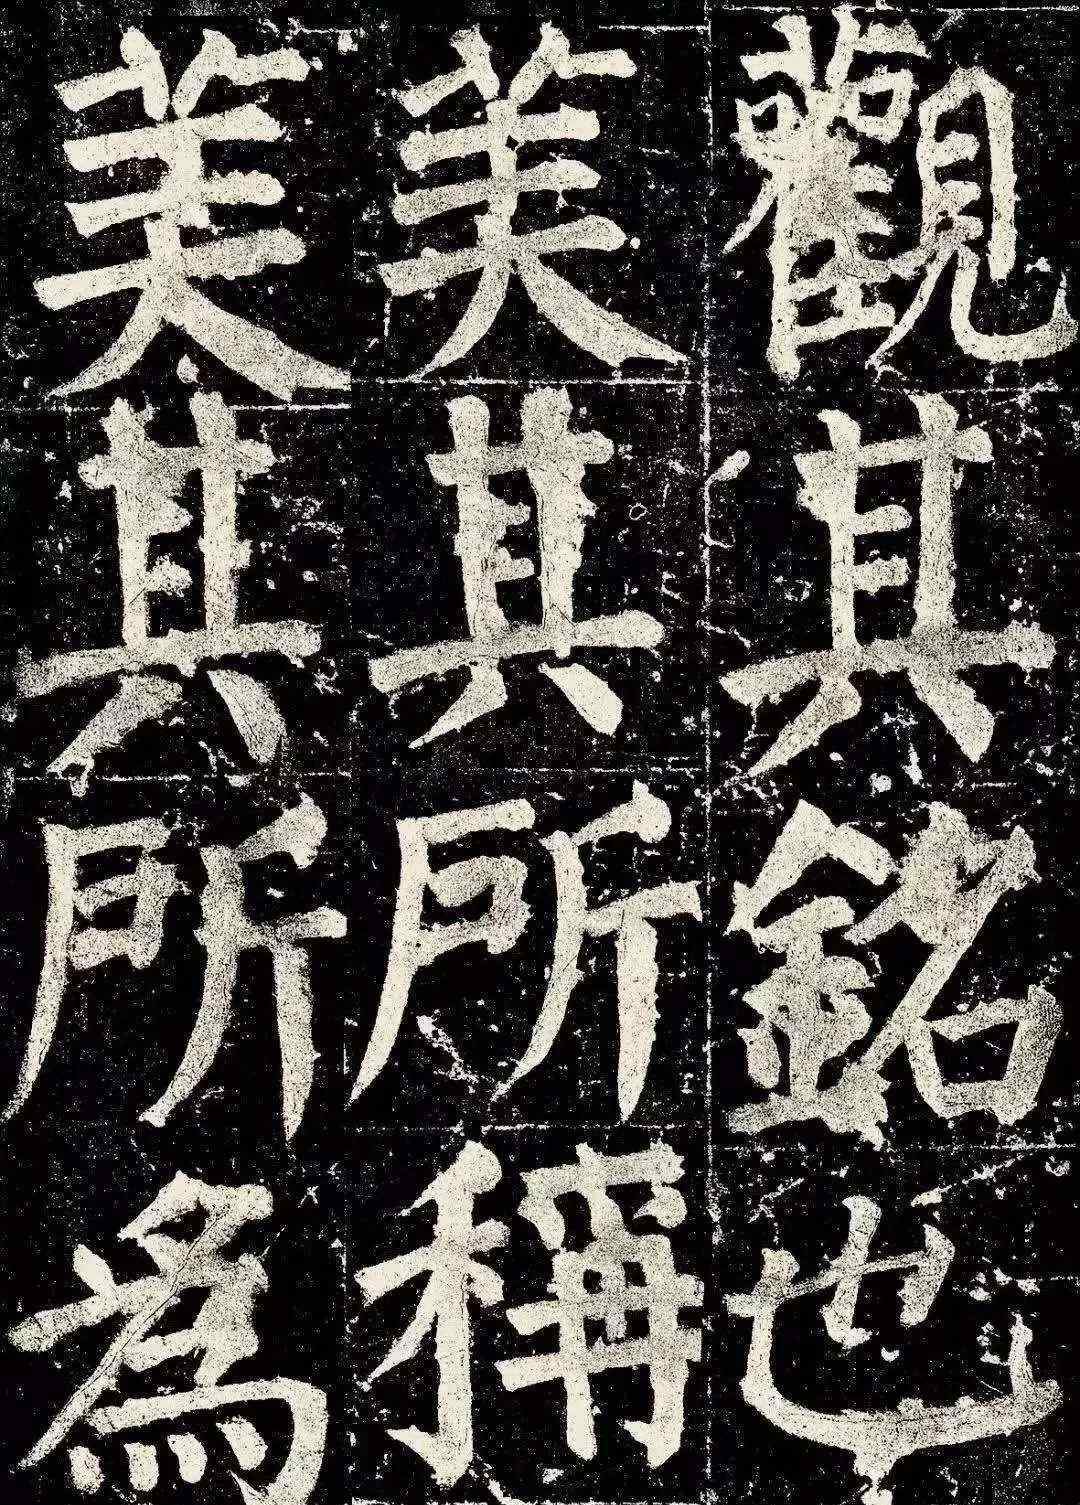 觀其銘也
美其所稱
美其所為